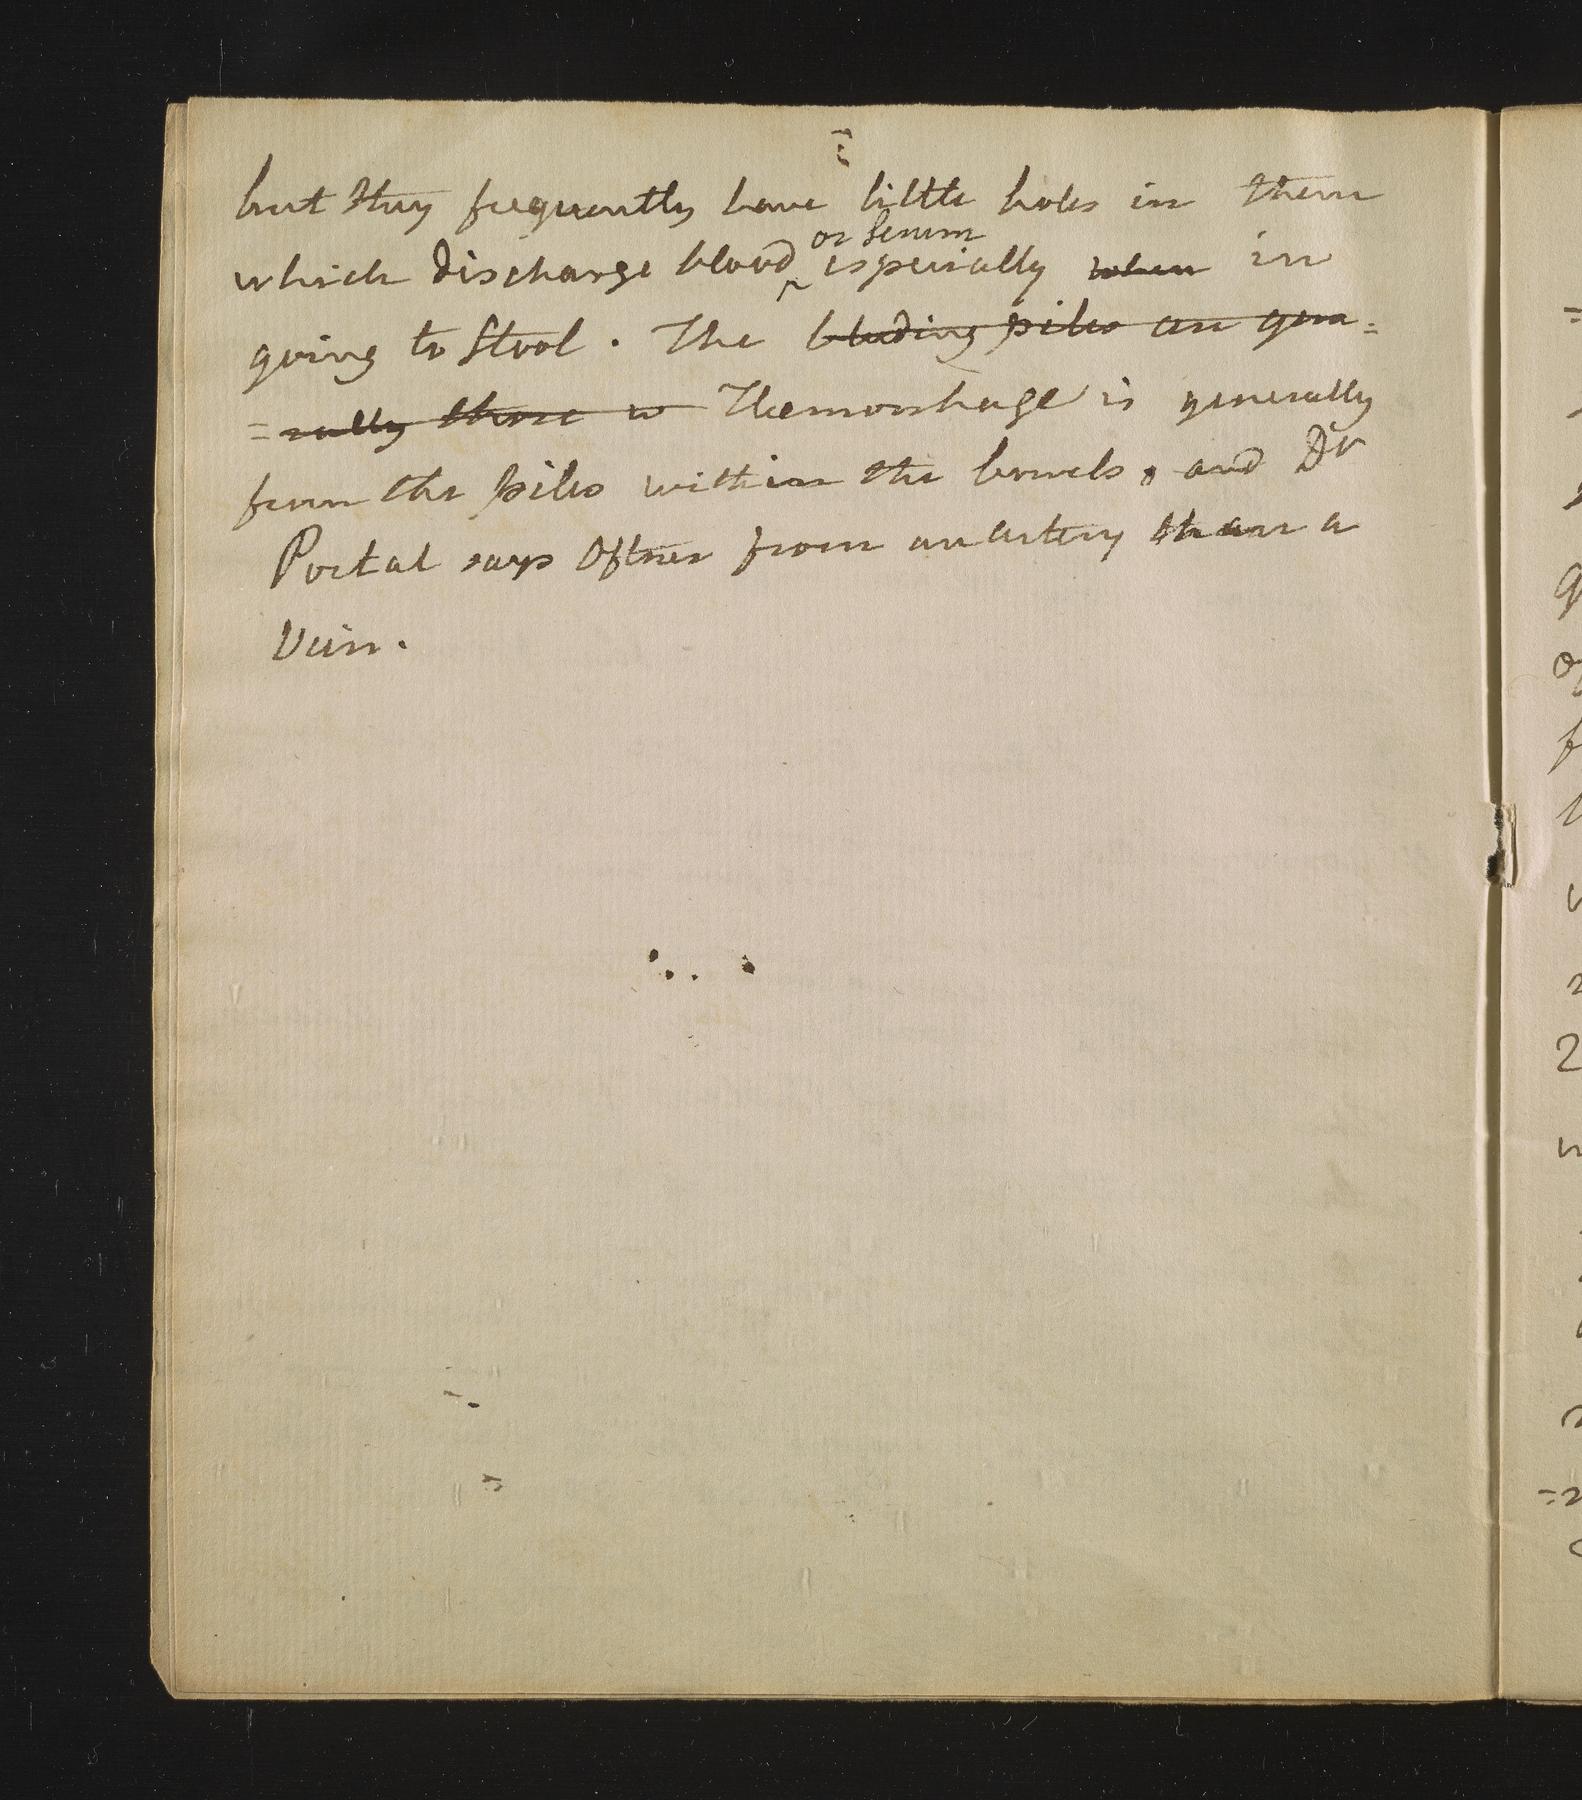 but they frequently have little holes in them
which discharge blood ^ or serum especially ~~when~~ in
going to stool. The ~~bleeding piles are gene=~~
~~=rally those w~~ Hæmorrhage is generally
from the piles within the bowels, and Dr
Portal says oftner from an artery than a
Vein.